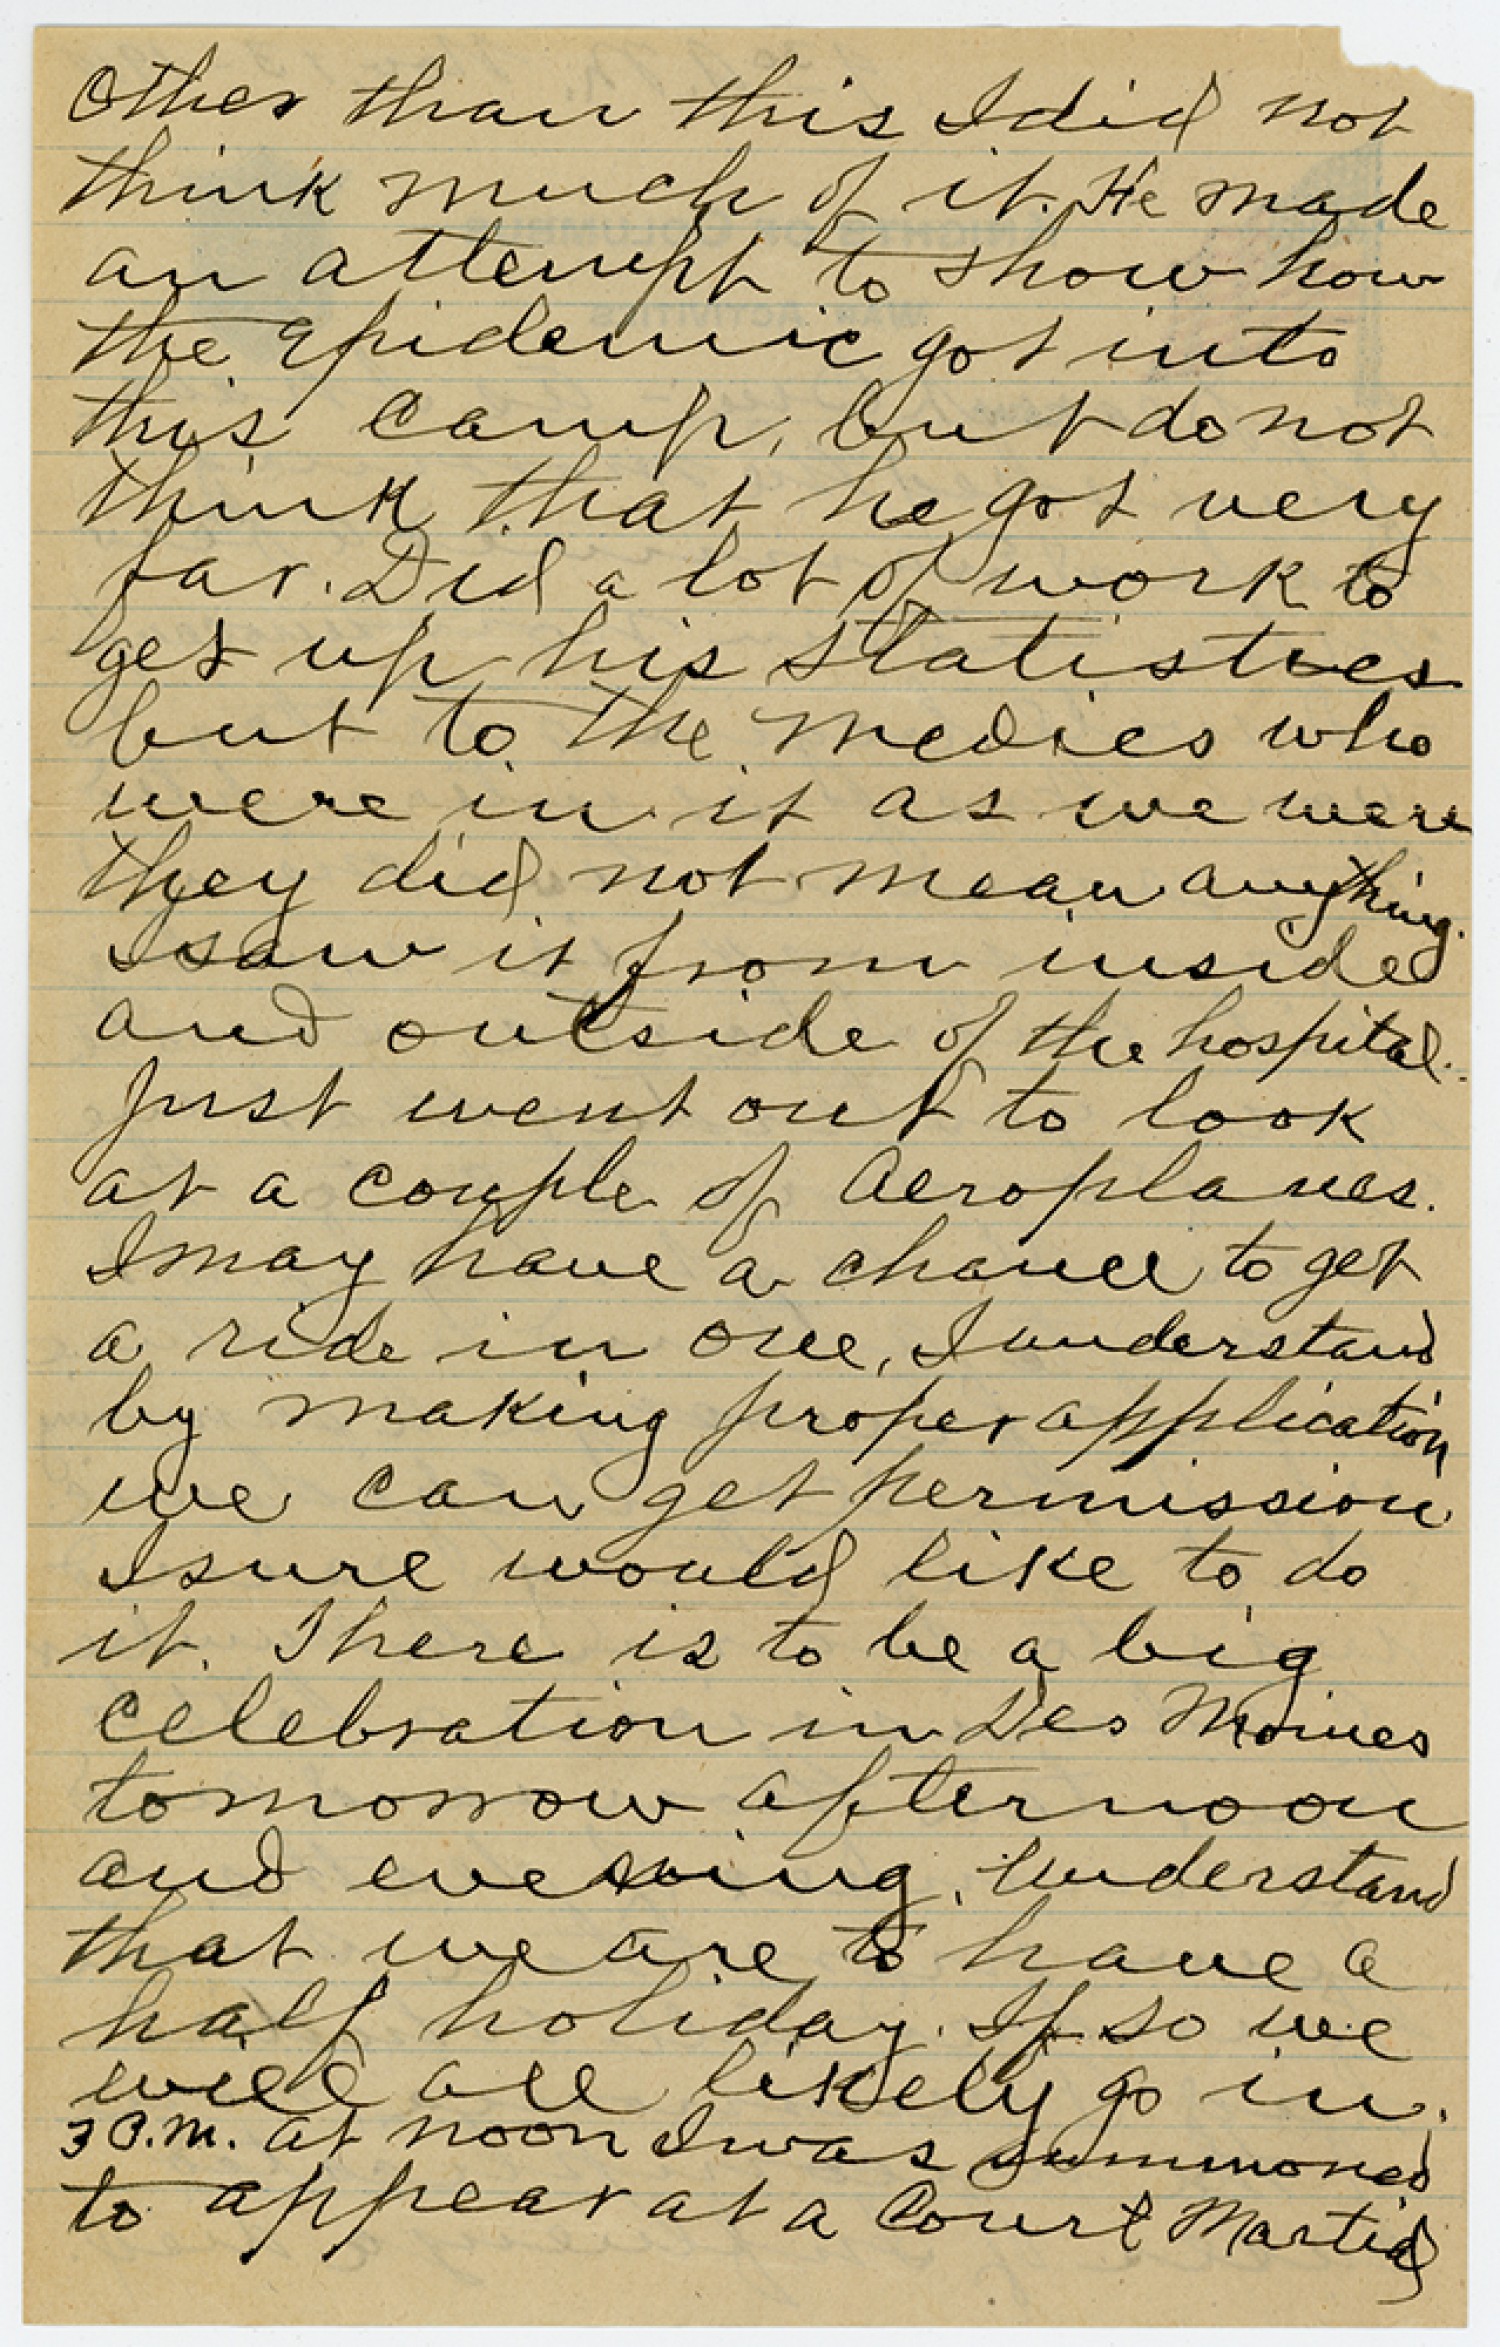 Other than this I did not
think much of it. He made
an attempt to show how
the epidemic got into
this camp, but do not
think that he got very
far. Did a lot of work to
get up his statistics
but to the medics who
were in it as we were
they did not mean anything.
I saw it from inside
and outside of the hospital.
Just went out to look
at a couple of Aeroplanes.
I may have a chance to get
a ride in one, I understand
by making proper application
we can get permission
I sure would like to do
it. There is to be a big
celebration in Des Moines
tomorrow afternoon
and evening. Understand
that we are to have a
half holiday. If so we
will all likely go in.
3 P.M. at noon I was summoned
to appear at a Court Martial